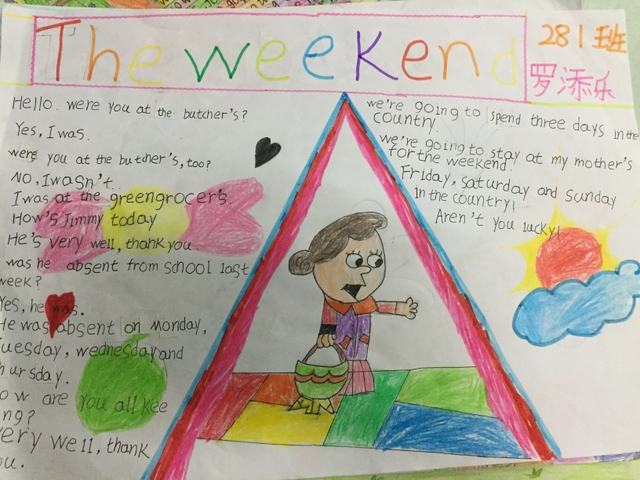 The weekend
281班
罗添乐
Hello. were you at the butcher's?
Yes, I was.
were you at the butcher's, too?
No, I wasn't.
I was at the greengrocer's.
How's Jimmy today
He's very well, thank you
was he absent from school last
week?
Yes, he was.
He was absent on Monday,
Tuesday, wednesday and
hursday.
ow are you all kee
ng?
very well, thank
ou.
we're going to spend three days in the
country.
we're going to stay at my mother's
for the weekend.
Friday, saturday and sunday
in the country!
Aren't you lucky!